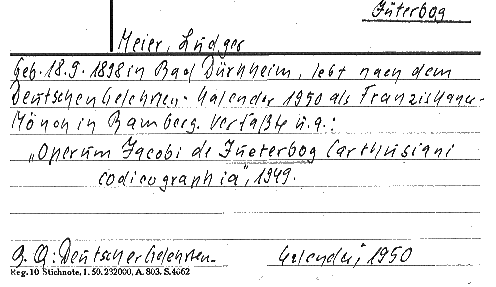 Jüterbog
Meier, Ludger
Geb. 18.9.1898 in Bad Dürkheim, lebt nach dem
Deutschen Gelehrten-Kalender 1950 als Franziskaner-
Mönch in Bamberg. Verfaßte u.a.:
„Operum Jacobi de Jueterbog Carthusiani
codicographia", 1949.
Q.: Deutscher Gelehrten- Kalender, 1950
Reg. 10 Stichnote, 1. 50. 232000, A. 803. S. 4662